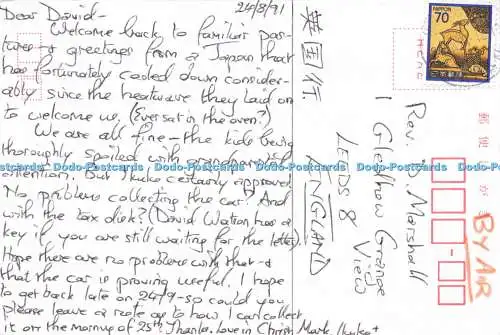 24/8/91
Dear David-
Welcome back to familiar pas-
tures & greetings from a Japan that
has fortunately cooled down consider-
ably since the heatwave they laid on
to welcome us. (Ever sat in the oven?)
We are all fine - the kids being
thoroughly spoiled with grandparental
attention. But Ikuko certainly approves!
No problems collecting the car? And
with the tax disk? (David Watson has a
key if you are still waiting for the letter).
Hope there are no problems with that &
that the car is proving useful. I hope
to get back late on 24/9 - so could you
please leave a note as to how I can collect
it on the morning of 25th. Thanks. Love in Christ, Mark, Ikuko
英国行
Rev. D. Marshall
1 Gledhow Grange
View
LEEDS 8
ANGLAND
NIPPON
70
日本郵便
郵便はがき
BY AIR
Dodo-Postcards Dodo-Postcards Dodo-Postcards Dodo-Postcards Dodo-Postcards